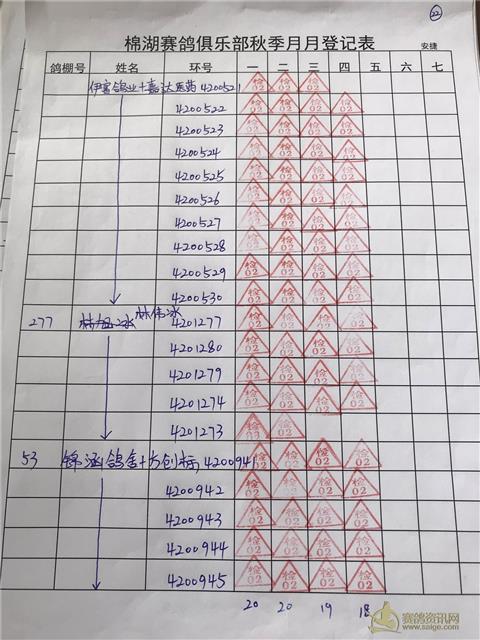 22
棉湖赛鸽俱乐部秋季月月登记表
安捷
鸽棚号 姓名 环号 一 二 三 四 五 六 七
伊富鸽业+嘉达医药 4200521 检02 检02 检02
4200522 检02 检02 检02 检02
4200523 检02 检02 检02 检02
4200524 检02 检02 检02 检02
4200525 检02 检02 检02 检02
4200526 检02 检02 检02 检02
4200527 检02 检02 检02 检02
4200528 检02 检02 检02 检02
4200529 检02 检02 检02 检02
4200530 检02 检02 检02 检02
277 林伟冰 4201277 检02 检02 检02 检02
4201280 检02 检02 检02 检02
4201279 检02 检02 检02 检02
4201274 检02 检02 检02 检02
4201273 检02 检02
53 锦涵鸽舍+方创标 4200941 检02 检02 检02 检02
4200942 检02 检02 检02 检02
4200943 检02 检02 检02 检02
4200944 检02 检02 检02 检02
4200945 检02 检02 检02 检02
20 20 19 18
赛鸽资讯网
www.saige.com